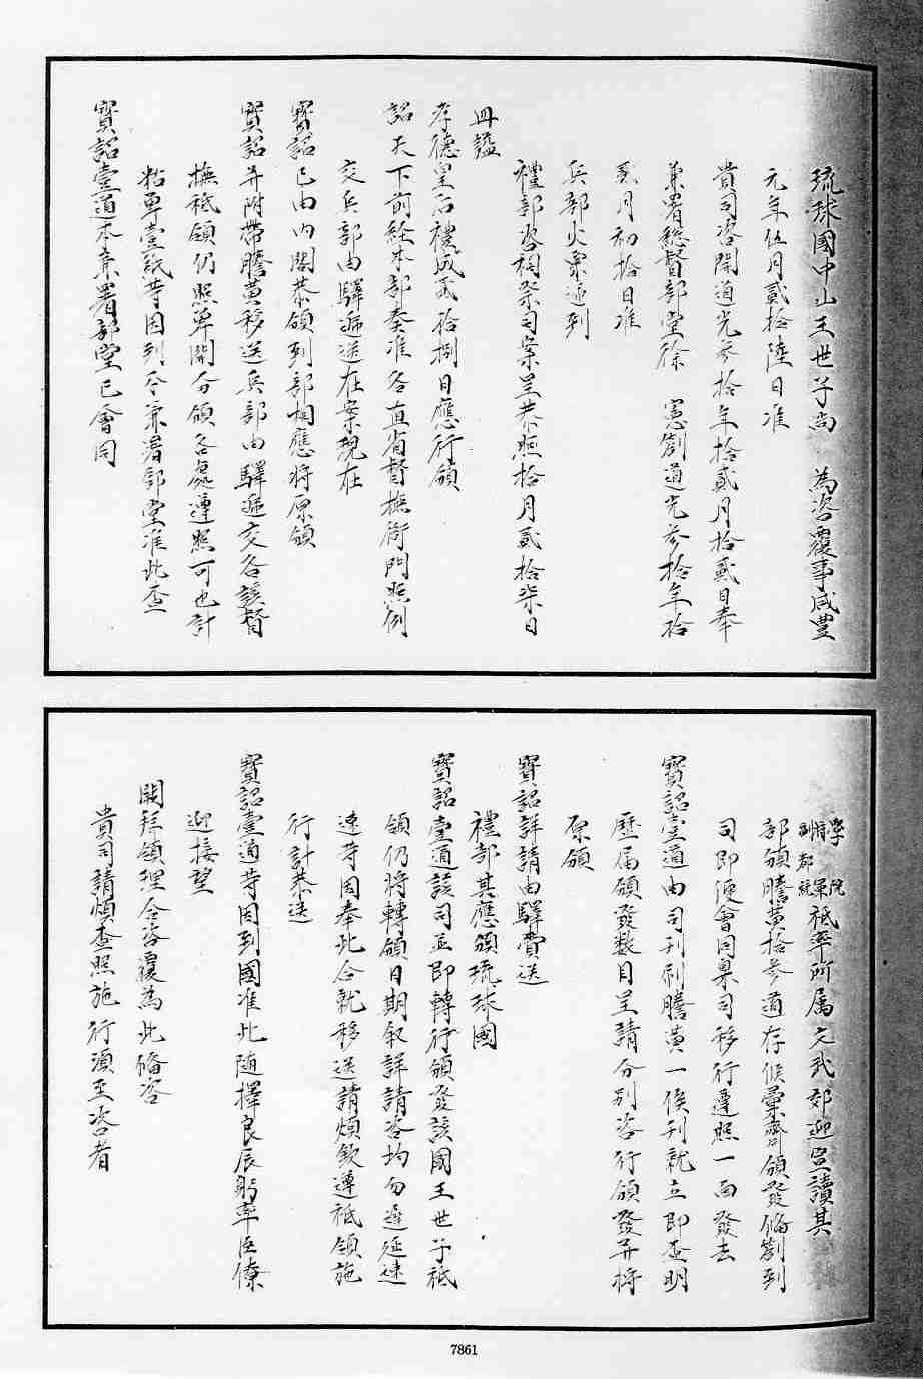 琉球國中山王世子尚　為咨覆事咸豐
元年伍月貳拾陸日准
貴司咨開道光叁拾年拾貳月拾貳日奉
兼署總督部堂徐　憲劄道光叁拾年拾
貳月初拾日准
兵部火票逓到
禮部咨祠祭司案呈恭照拾月貳拾柒日
冊諡
孝德皇后禮成貳拾捌日應行頒
詔天下前經本部奏准各直省督撫衙門照例
交兵部由驛遞送在案現在
寳詔已由内閣恭領到部相應將原領
寳詔并附帶謄黃移送兵部由驛逓交各該督
撫祗領仍照单開分頒各處遵照可也計
粘单壹紙等因到今兼署部堂准此查
寳詔壹道本兼署部堂已會同
學院
將軍
副都統
祗率所属文武郊迎宣讀其
部頒謄黃拾參道存候彙齊頒發脩劄到
司即便會同臬司移行遵照一面發去
寳詔壹道由司刊刷謄黃一俟刊就立即查明
歷届頒發数目呈請分别咨行頒發并将
原頒
寳詔詳請由驛賫送
禮部其應頒琉球國
寳詔壹道該司並即轉行頒發該國王世子祗
領仍将轉頒日期叙詳請咨均勿遲延速
速等因奉此合就移送請煩欽遵祗領施
行計恭送
寳詔壹道等因到國准此随擇良辰躬率臣僚
迎接望
闕拜領理合咨覆為此脩咨
貴司請煩查照施行湏至咨者
7861